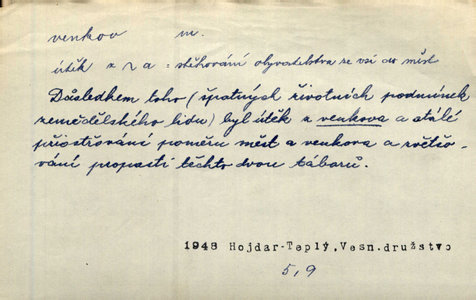 venkov m.
útěk z ~a = stěhování obyvatelstva ze vsi do měst
Důsledkem toho (špatných životních podmínek
zemědělského lidu) byl útěk z venkova a stálé
přiostřování poměru měst a venkova a zvětšo-
vání propasti těchto dvou táborů.
1948 Hojdar-Teplý,Vesn.družstvo
5,9